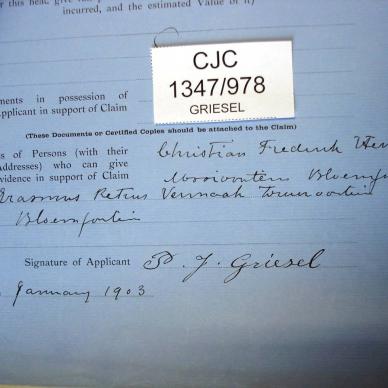 this head, give full p
incurred, and the estimated value of it)
CJC
1347/978
GRIESEL
ments in possession of
applicant in support of Claim
(These Documents or Certified Copies should be attached to the Claim)
s of Persons (with their Christian Frederik
Addresses) who can give
vidence in support of Claim
Erasmus Petrus
Bloemfontein
Signature of Applicant P. J. Griesel
January 1903